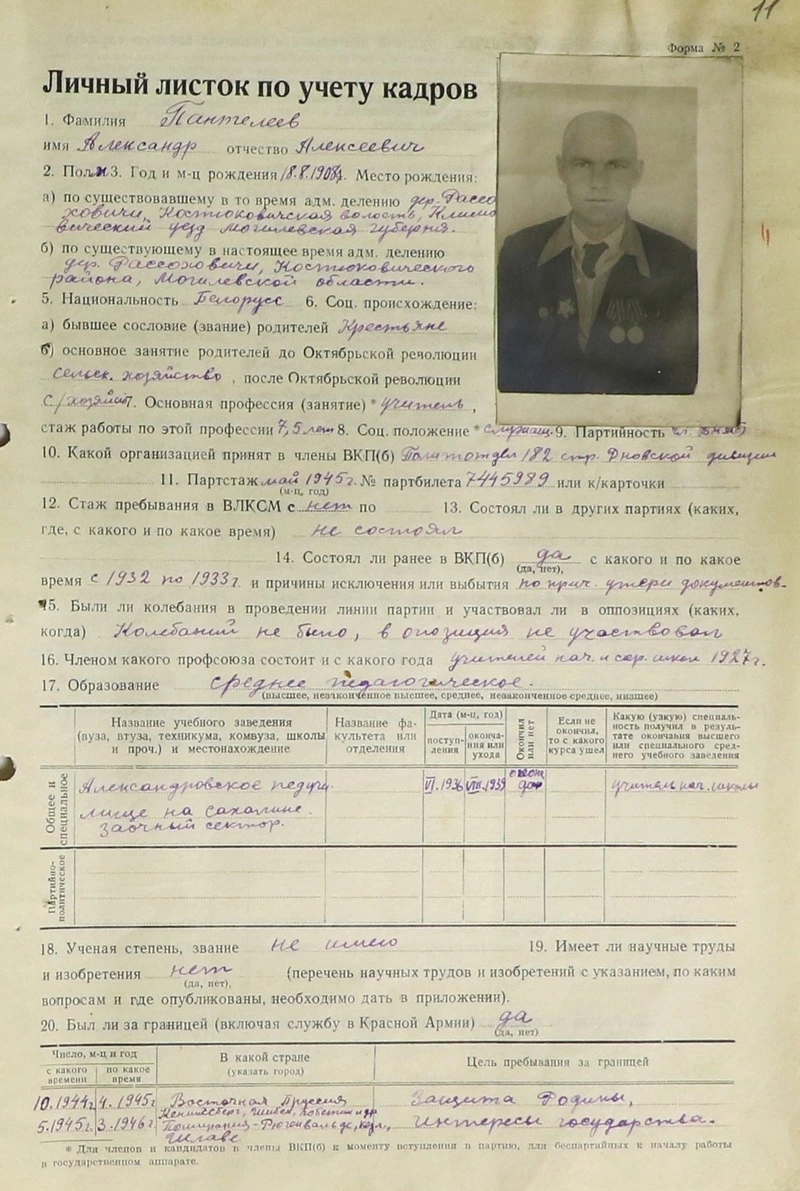 11
Форма № 2
Личный листок по учету кадров
1. Фамилия Пантелеев
имя Александр отчество Алексеевич
2. Пол м 3. Год и м-ц рождения 18.8.1908г. Место рождения:
а) по существовавшему в то время адм. делению дер. Рассо
ховичи, Костюковичская волость, Климо
вический уезд Могилевская губерния.
б) по существующему в настоящее время адм. делению
дер. Рассоховичи, Костюковического
района, Могилевской области.
5. Национальность Белорусс 6. Соц. происхождение:
а) бывшее сословие (звание) родителей Крестьяне
б) основное занятие родителей до Октябрьской революции
сельск. хозяйство, после Октябрьской революции
с/хозяйст 7. Основная профессия (занятие) * учитель,
стаж работы по этой профессии 7,5 лет 8. Соц. положение * служащ. 9. Партийность чл. ВКП(б)
10. Какой организацией принят в члены ВКП(б) Политотдел 182 стр. Дновской дивизии
11. Партстаж май 1945г. № партбилета 7445989 или к/карточки
(м-ц, год)
12. Стаж пребывания в ВЛКСМ с нет по 13. Состоял ли в других партиях (каких,
где, с какого и по какое время) не состоял
14. Состоял ли ранее в ВКП(б) да с какого и по какое
(да, нет),
время с 1932 по 1933г. и причины исключения или выбытия по прич. утери документов.
15. Были ли колебания в проведении линии партии и участвовал ли в оппозициях (каких,
когда) Колебаний не было, в опозиция не участвовал
16. Членом какого профсоюза состоит и с какого года учителей нач. и сер. школ 1927г.
17. Образование среднее педагогическое.
(высшее, незаконченное высшее, среднее, незаконченное среднее, низшее)
Название учебного заведения
(вуза, втуза, техникума, комвуза, школы
и проч.) и местонахождение
Название фа-
культета или
отделения
Дата (м-ц, год)
поступ-
ления
оконча-
ния или
ухода
Окончил
или нет
Если не
окончил,
то с какого
курса ушел
Какую (узкую) специаль-
ность получил в резуль-
тате окончания высшего
или специального сред-
него учебного заведения
Общее и
специальное
Александровское педучи-
лище на Сахалине.
заочный сектор.
VI.1936
VIII.1939
учитель нач. школы
Партийно-
политическое
18. Ученая степень, звание не имею 19. Имеет ли научные труды
и изобретения нет (перечень научных трудов и изобретений с указанием, по каким
(да, нет),
вопросам и где опубликованы, необходимо дать в приложении).
20. Был ли за границей (включая службу в Красной Армии) да
(да, нет)
Число, м-ц и год
с какого
времени
по какое
время
В какой стране
(указать город)
Цель пребывания за границей
10.1944г. 4.1945г. Восточная Пруссия Защита Родины,
5.1945г. 3.1946г. Померания - интересы государства.
* Для членов и кандидатов в члены ВКП(б) к моменту вступления в партию, для беспартийных к началу работы
в государственном аппарате.